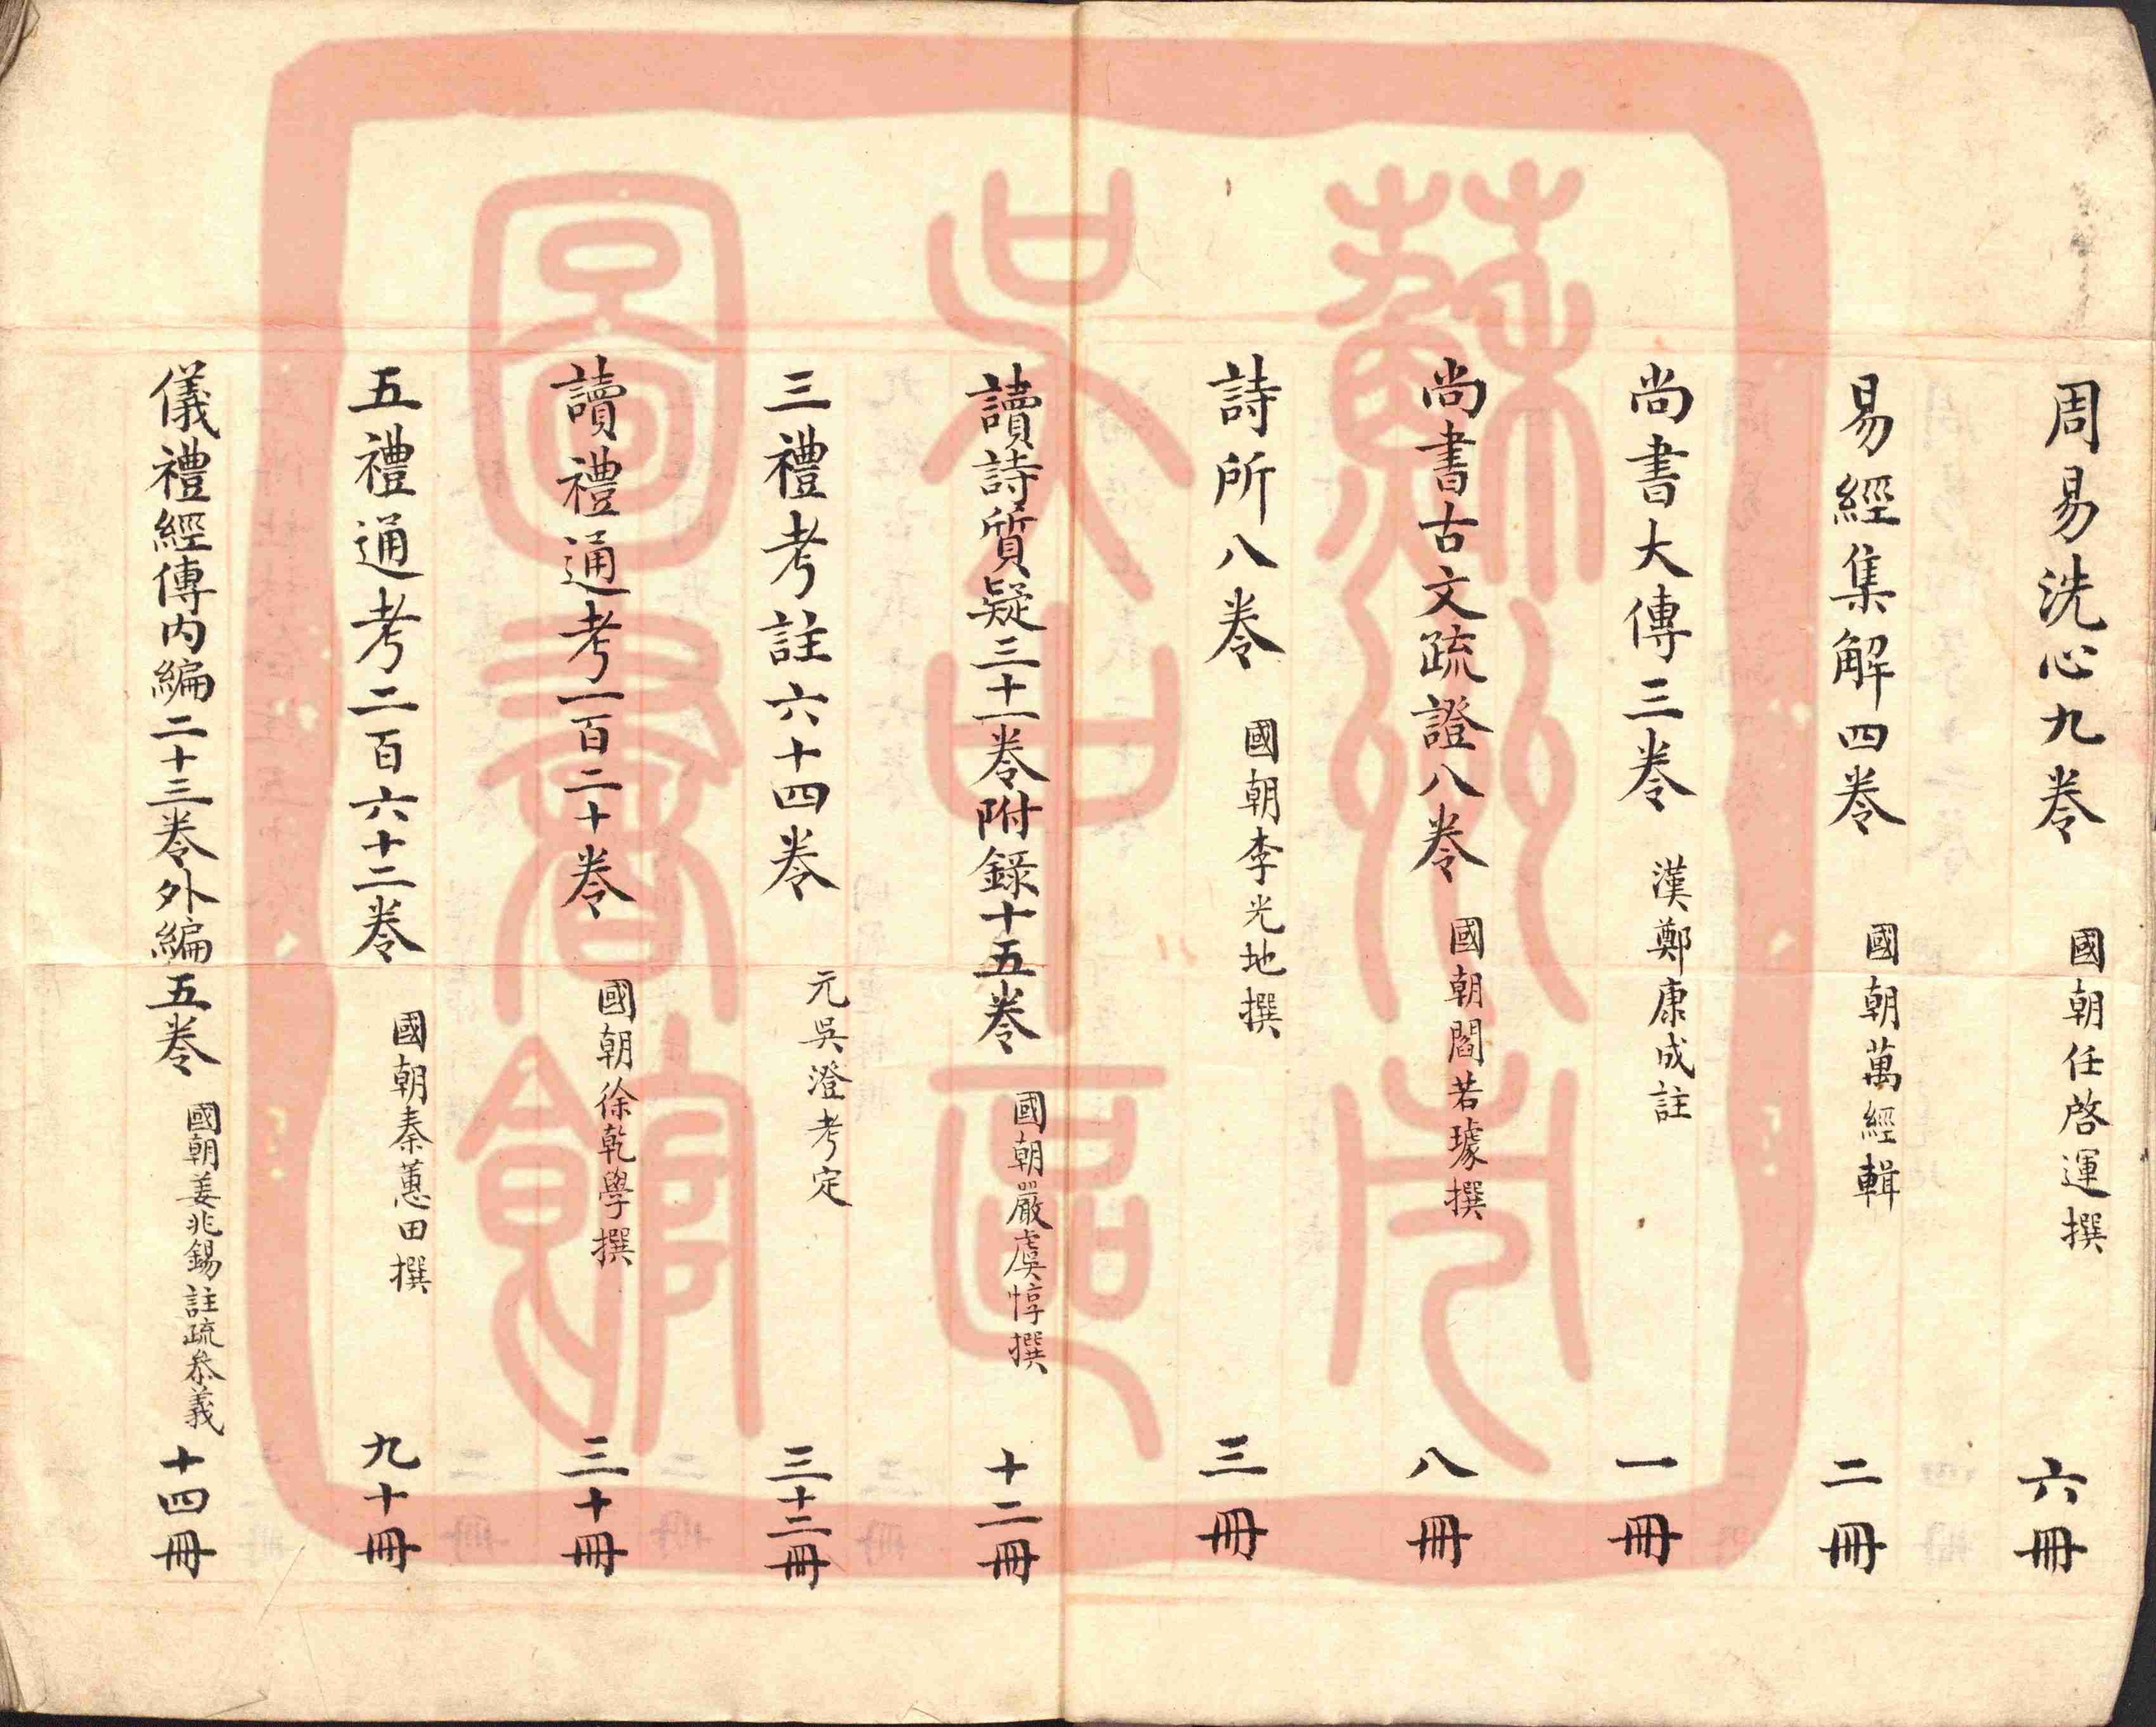 周易洗心九卷 國朝任啓運撰 六冊
易經集解四卷 國朝萬經輯 二冊
尚書大傳三卷 漢鄭康成註 一冊
尚書古文疏證八卷 國朝閻若璩撰 八冊
詩所八卷 國朝李光地撰 三冊
讀詩質疑三十一卷附錄十五卷 國朝嚴虞惇撰 十二冊
三禮考註六十四卷 元吳澄考定 三十二冊
讀禮通考一百二十卷 國朝徐乾學撰 三十冊
五禮通考二百六十二卷 國朝秦蕙田撰 九十冊
儀禮經傳內編二十三卷外編五卷 國朝姜兆錫註疏叅義 十四冊
蘇州市
吳中區
圖書館